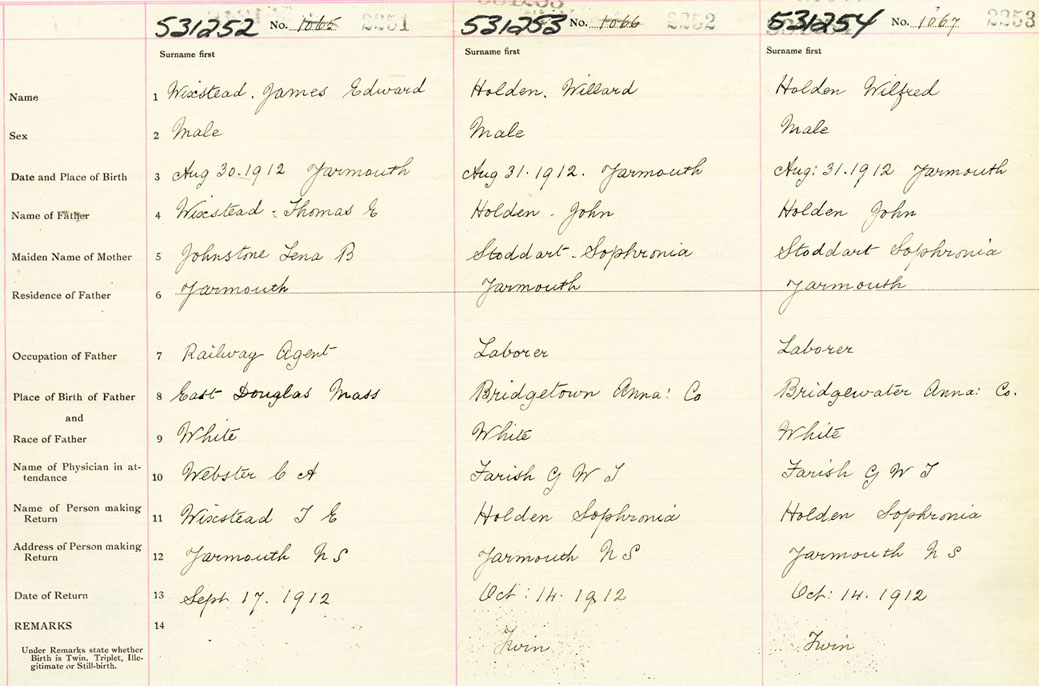 531252 No. 1065 2251 531253 No. 1066 2252 531254 No. 1067 2253
Surname first Surname first Surname first
Name 1 Wixstead. James Edward Holden. Willard Holden Wilfred
Sex 2 Male Male Male
Date and Place of Birth 3 Aug 30.1912 Yarmouth Aug 31.1912. Yarmouth Aug: 31.1912 Yarmouth
Name of Father 4 Wixstead - Thomas E Holden - John Holden John
Maiden Name of Mother 5 Johnstone Lena B Stoddart - Sophronia Stoddart Sophronia
Residence of Father 6 Yarmouth Yarmouth Yarmouth
Occupation of Father 7 Railway Agent Laborer Laborer
Place of Birth of Father 8 East Douglas Mass Bridgetown Anna: Co Bridgewater Anna: Co.
and
Race of Father 9 White White White
Name of Physician in at-
tendance 10 Webster C A Farish G W T Farish G W T
Name of Person making
Return 11 Wixstead T E Holden Sophronia Holden Sophronia
Address of Person making
Return 12 Yarmouth N S Yarmouth N S Yarmouth N S
Date of Return 13 Sept 17. 1912 Oct: 14. 1912 Oct: 14. 1912
REMARKS 14
Under Remarks state whether
Birth is Twin, Triplet, Ille-
gitimate or Still-birth.
Twin Twin